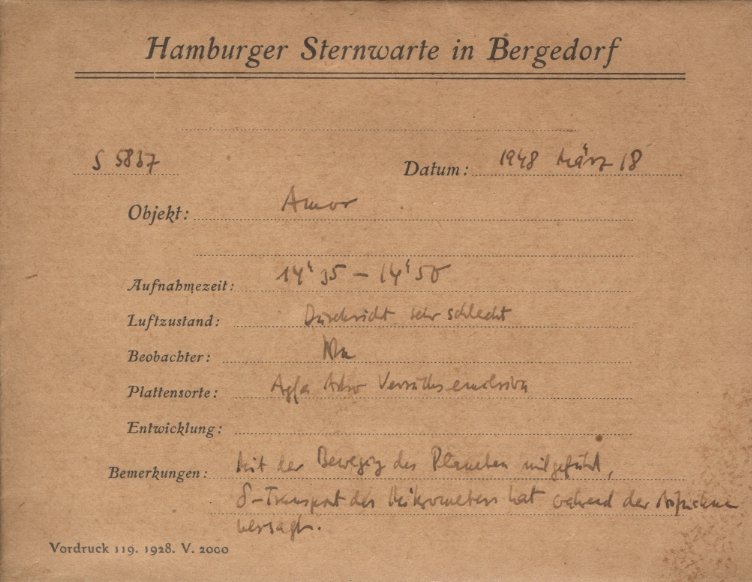 Hamburger Sternwarte in Bergedorf
S 5837
Datum: 1948 März 18
Objekt: Amor
Aufnahmezeit: 14ʰ35 – 14ʰ50
Luftzustand: Durchsicht sehr schlecht
Beobachter:
Plattensorte: Agfa Astro Versuchsemulsion
Entwicklung:
Bemerkungen: Mit der Bewegung des Planeten mitgeführt,
δ-Transport des Mikrometers hat während der Aufnahme
versagt.
Vordruck 119. 1928. V. 2000